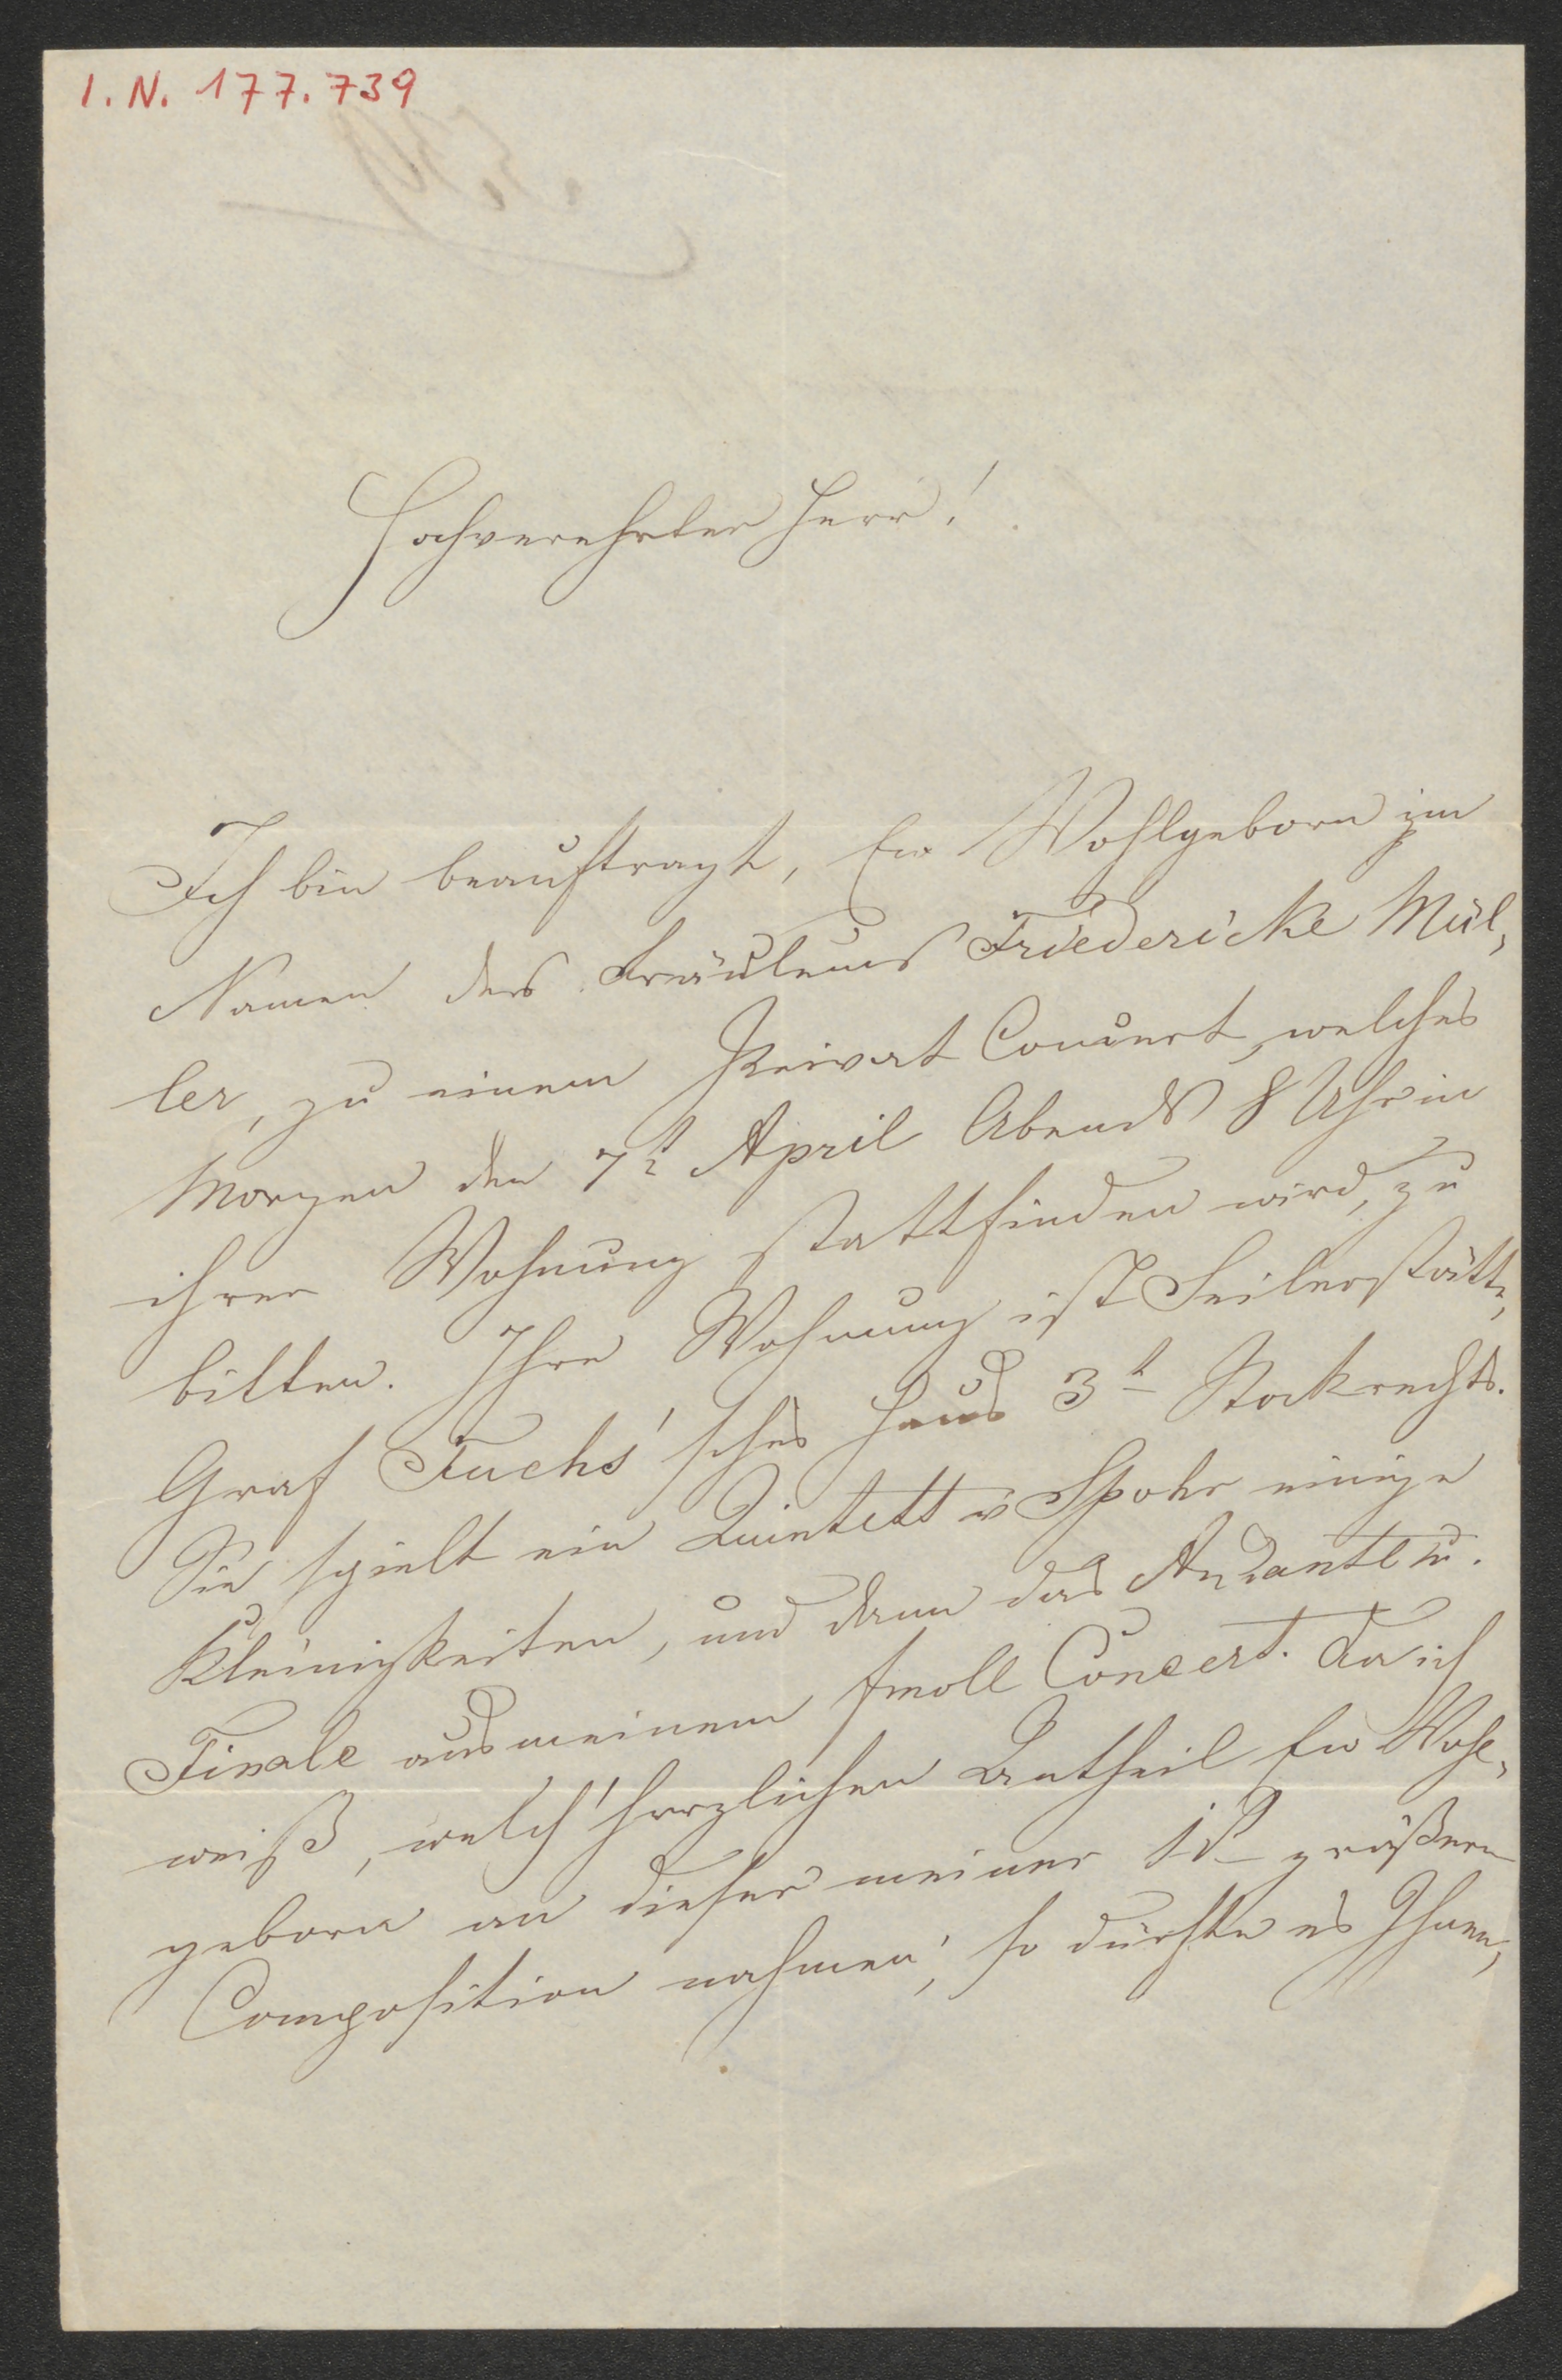 I. N. 177.739
Hochverehrter Herr!
Ich bin beauftragt, Ew Wohlgeborn im
Namen des Fräuleins Friedericke Mül,
ler, zu einem Privat Concert, welches
Morgen den 7t April Abends 8 Uhr in
ihrer Wohnung stattfinden wird, zu
bitten. Ihre Wohnung ist Seilerstätte,
Graf Fuchs'sches Haus 3t Stock rechts.
Sie spielt ein Quintett v Spohr einige
Kleinigkeiten, und dann das Andante u.
Finale aus meinem fmoll Concert. Da ich
weiß, welch' herzlichen Antheil Ew Wohl,
geborn an dieser meiner 1t größern
Composition nahmen, so dürfte es Ihnen,